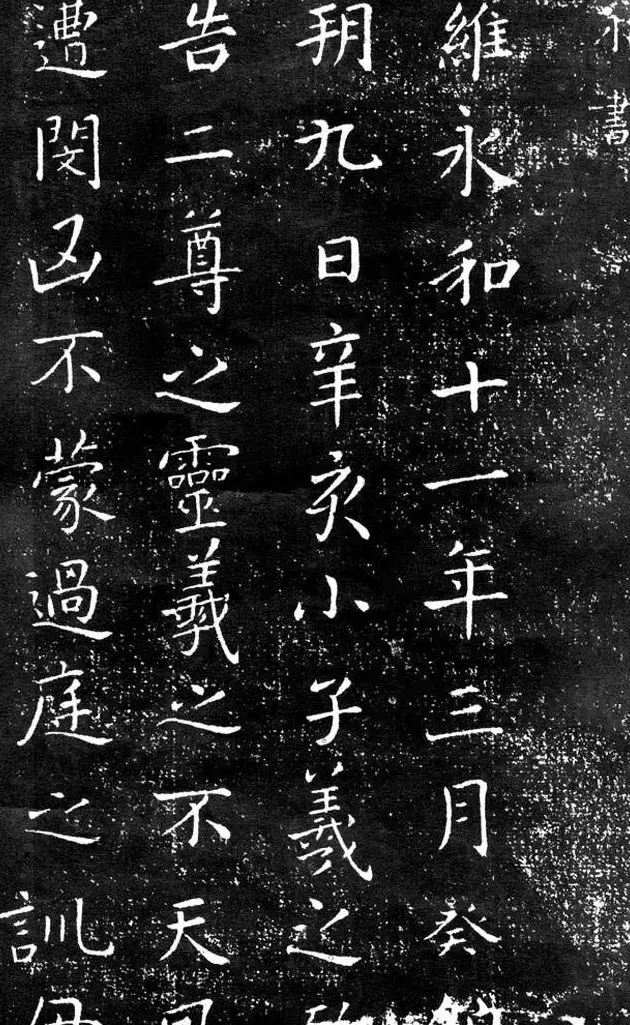 書
維永和十一年三月癸
朔九日辛亥小子羲之
告二尊之靈羲之不天
遭閔凶不蒙過庭之訓